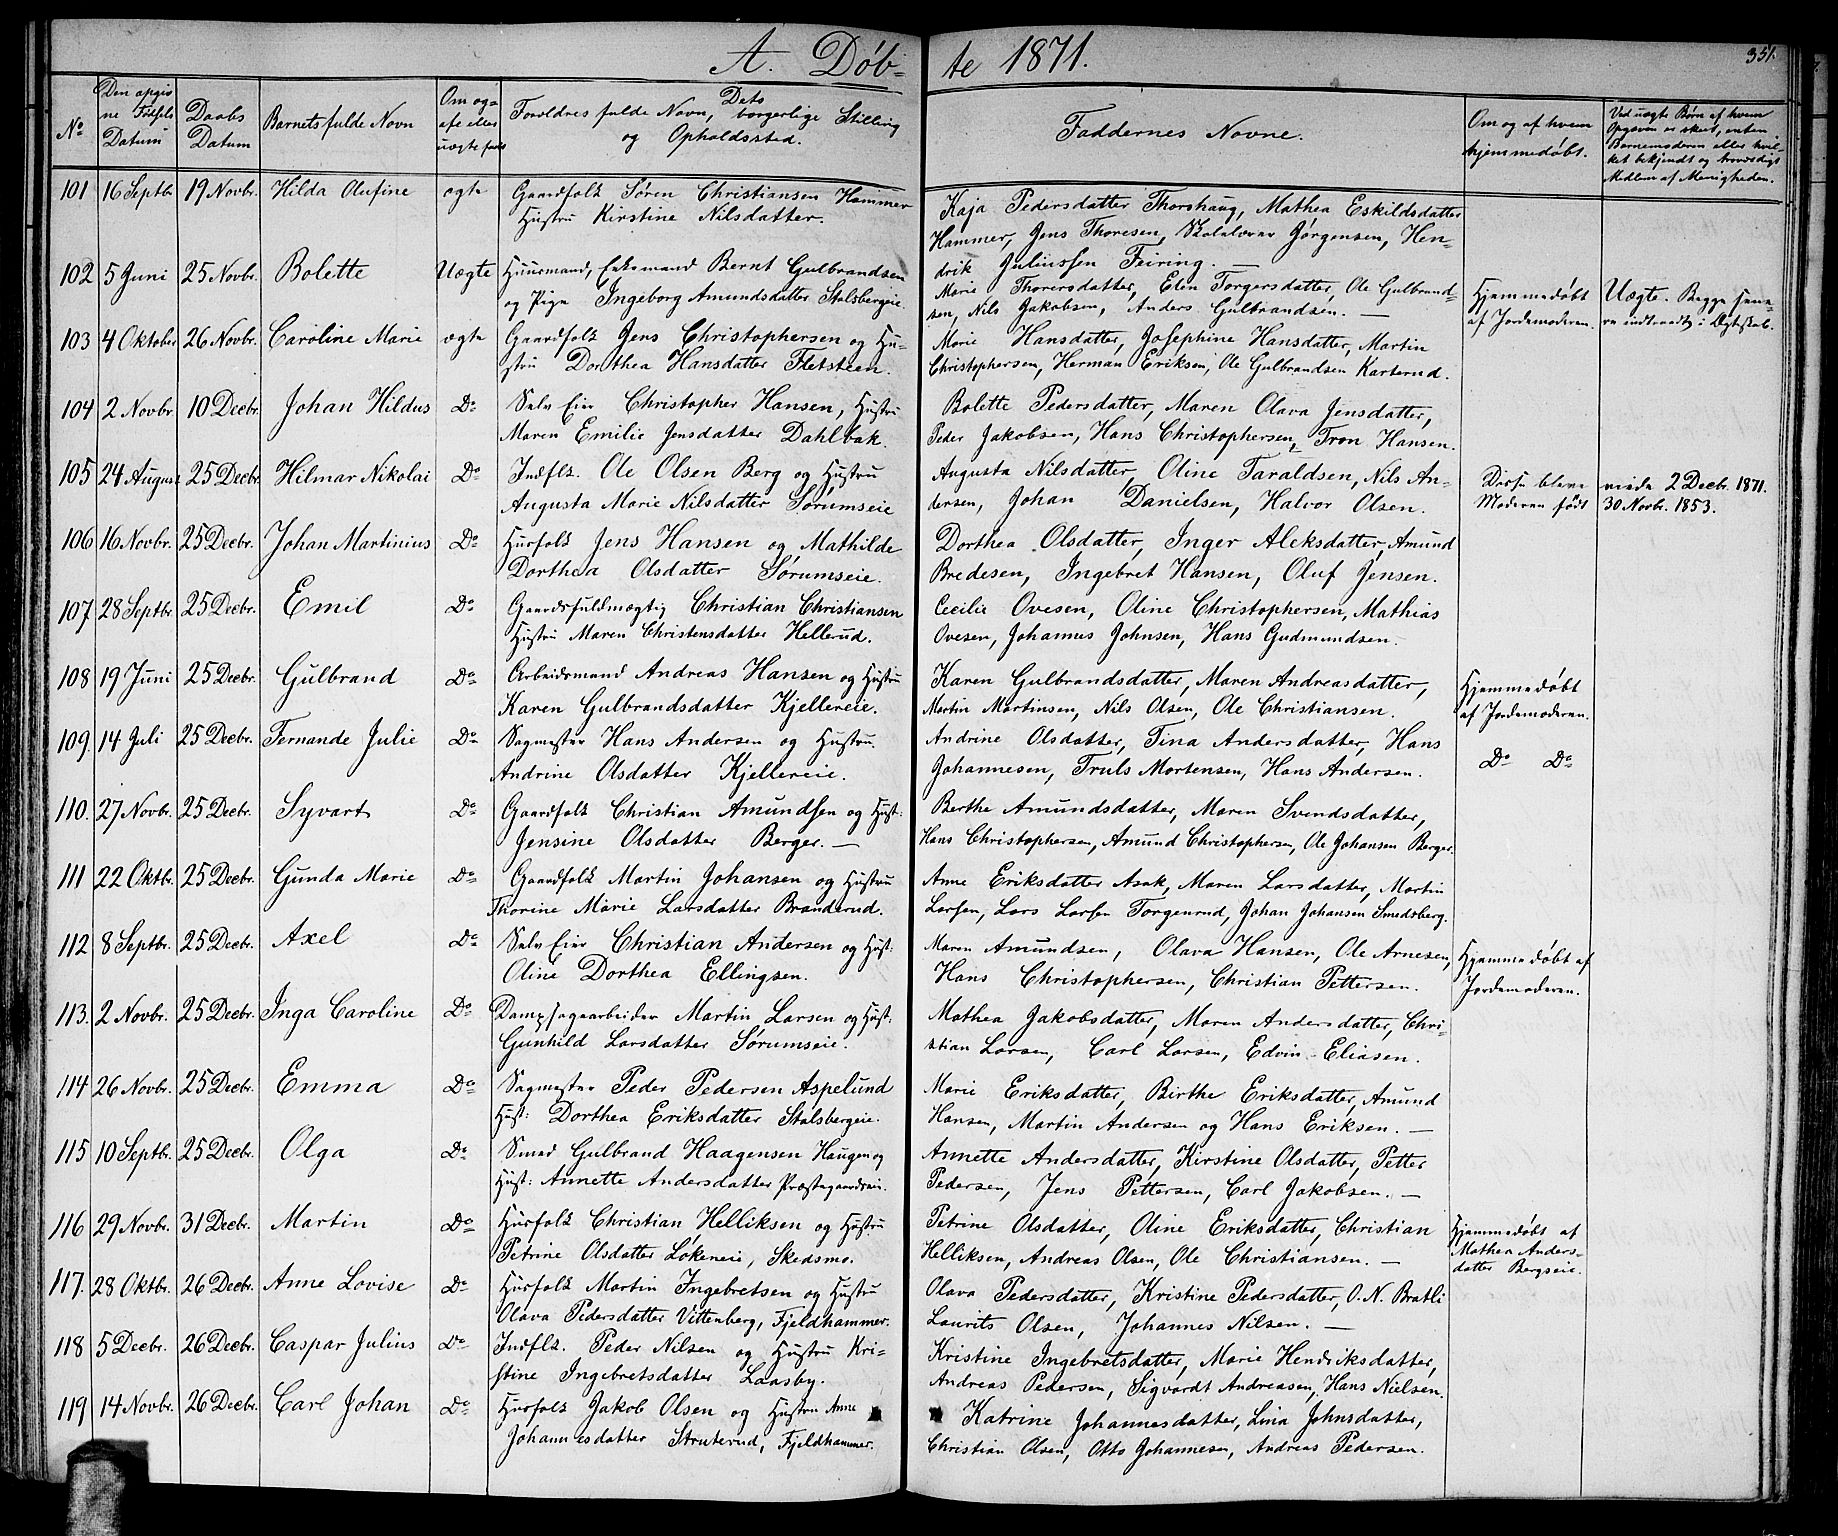 A. Døb- te 1871.
351.
No
Den opgivne Fødsels Datum
Daabs Datum
Barnets fulde Navn
Om ægte eller uægte født
Forældres fulde Navn, Dets borgerlige Stilling og Opholdssted.
Faddernes Navne.
Om og af hvem hjemmedøbt.
Ved uægte Børn af hvem Opgaven er skeet, enten Barnemoderen eller hvilket bekjendt og troværdigt Medlem af Menigheden.
101 16 Septbr 19 Novbr. Hilda Olufine ægte Gaardfolk Søren Christiansen Hammer
Hustru Kirstine Nilsdatter.
Kaja Pedersdatter Thorshaug, Mathea Eskildsdatter
Hammer, Jens Thoresen, Skolelærer Jørgensen, Hen-
drik Juliussen Feiring. —
102 5 Juni 25 Novbr. Bolette Uægte Huusmand, Enkemand Bernt Gulbrandsen
og Pige Ingeborg Amundsdatter Stalsbergeie.
Marie Thorersdatter, Elen Torgersdatter, Ole Gulbrand-
sen, Nils Jakobsen, Anders Gulbrandsen. —
Hjemmedøbt
af Jordemoderen.
Uægte. Begge sene-
re indtraadt i Ægteskab.
103 4 Oktober 26 Novbr. Caroline Marie ægte Gaardfolk Jens Christophersen og Hu-
stru Dorthea Hansdatter Fletsteen.
Marie Hansdatter, Josephine Hansdatter, Martin
Christophersen, Herman Eriksen, Ole Gulbrandsen Karterud.
104 2 Novbr. 10 Decbr. Johan Hildus Do Selv Eier Christopher Hansen, Hustru
Maren Emilie Jensdatter Dahlbak.
Bolette Pedersdatter, Maren Olava Jensdatter,
Peder Jakobsen, Hans Christophersen, Tron Hansen.
105 24 August 25 Decbr. Hilmar Nikolai Do Indflz. Ole Olsen Berg og Hustru
Augusta Marie Nilsdatter Sørumseie
Augusta Nilsdatter, Oline Taraldsen, Nils An-
dersen, Johan Danielsen, Halvor Olsen.
Disse bleve viede 2 Decbr. 1871.
Moderen født 30 Novbr. 1853.
106 16 Novbr. 25 Decbr. Johan Martinius Do Husfolk Jens Hansen og Mathilde
Dorthea Olsdatter Sørumseie.
Dorthea Olsdatter, Inger Aleksdatter, Amund
Bredesen, Ingebret Hansen, Oluf Jensen.
107 28 Septbr. 25 Decbr. Emil Do Gaardsfuldmægtig Christian Christiansen
Hustru Maren Christensdatter Hellerud.
Cecilie Ovesen, Oline Christophersen, Mathias
Ovesen, Johannes Johnsen, Hans Gudmundsen.
108 19 Juni 25 Decbr. Gulbrand Do Arbeidsmand Andreas Hansen og Hustru
Karen Gulbrandsdatter Kjellereie.
Karen Gulbrandsdatter, Maren Andreasdatter,
Martin Martinsen, Nils Olsen, Ole Christiansen.
Hjemmedøbt
af Jordemoderen.
109. 14 Juli 25 Decbr. Fernande Julie Do Sagmester Hans Andersen og Hustru
Andrine Olsdatter Kjellereie.
Andrine Olsdatter, Tina Andersdatter, Hans
Johannesen, Truls Mortensen, Hans Andersen.
Do Do
110. 27 Novbr. 25 Decbr. Syvart Do Gaardfolk Christian Amundsen og Hust:
Jensine Olsdatter Berger. —
Berthe Amundsdatter, Maren Svendsdatter,
Hans Christophersen, Amund Christophersen, Ole Johansen Berger.
111 22 Oktbr. 25 Decbr. Gunda Marie Do Gaardfolk Martin Johansen og Hustru
Thorine Marie Larsdatter Branderud.
Anne Eriksdatter Asak, Maren Larsdatter, Martin
Larsen, Lars Larsen Torgenrud, Johan Johansen Smedsberg.
112 8 Septbr. 25 Decbr. Axel Do Selv Eier Christian Andersen og Hust:
Oline Dorthea Ellingsen.
Maren Amundsen, Olava Hansen, Ole Arnesen,
Hans Christophersen, Christian Pettersen.
Hjemmedøbt af
Jordemoderen.
113. 2 Novbr. 25 Decbr. Inga Caroline Do Dampsagarbeider Martin Larsen og Hust:
Gunhild Larsdatter Sørumseie.
Mathea Jakobsdatter, Maren Andersdatter, Chri-
stian Larsen, Carl Larsen, Edvin Eliasen.
114 26 Novbr. 25 Decbr. Emma Do Sagmester Peder Pedersen Aspelund
Hust: Dorthea Eriksdatter Stalsbergeie.
Marie Eriksdatter, Birthe Eriksdatter, Amund
Hansen, Martin Andersen og Hans Eriksen. —
115 10 Septbr. 25 Decbr. Olga Do Smed Gulbrand Haagensen Haugen og
Hust: Annette Andersdatter Præstegaardseie.
Annette Andersdatter, Kirstine Olsdatter, Petter
Pedersen, Jens Pettersen, Carl Jakobsen. —
116 29 Novbr. 31 Decbr. Martin Do Husfolk Christian Helliksen og Hustru
Petrine Olsdatter Løkeneie, Skedsmo.
Petrine Olsdatter, Oline Eriksdatter, Christian
Helliksen, Andreas Olsen, Ole Christiansen. —
Hjemmedøbt af
Mathea Anders-
datter Bergseie.
117. 28 Oktbr. 26 Decbr. Anne Lovise Do Husfolk Martin Ingebretsen og Hustru
Olava Pedersdatter Vittenberg, Fjeldhammer.
Olava Pedersdatter, Kristine Pedersdatter, O. N. Bratli
Laurits Olsen, Johannes Nilsen. —
118 5 Decbr. 26 Decbr. Caspar Julius Do Indflz. Peder Nilsen og Hustru Kri-
stine Ingebretsdatter Laasby.
Kristine Ingebretsdatter, Marie Hendriksdatter,
Andreas Pedersen, Sigvardt Andreasen, Hans Nielsen.
119 14 Novbr. 26 Decbr. Carl Johan Do Husfolk Jakob Olsen og Hustru Anne
Johannesdatter Struterud, Fjeldhammer.
Katrine Johannesdatter, Lina Johnsdatter,
Christian Olsen, Otto Johannesen, Andreas Pedersen.